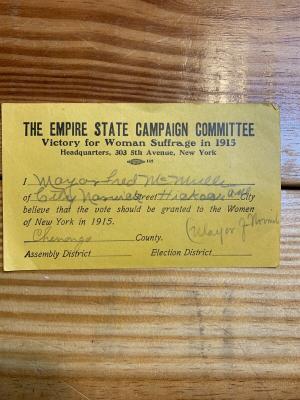 THE EMPIRE STATE CAMPAIGN COMMITTEE
Victory for Woman Suffrage in 1915
Headquarters, 303 5th Avenue, New York
I Mayor Fred
of City Street City
believe that the vote should be granted to the Women
of New York in 1915.
(Mayor
Chenango County.
Assembly District Election District